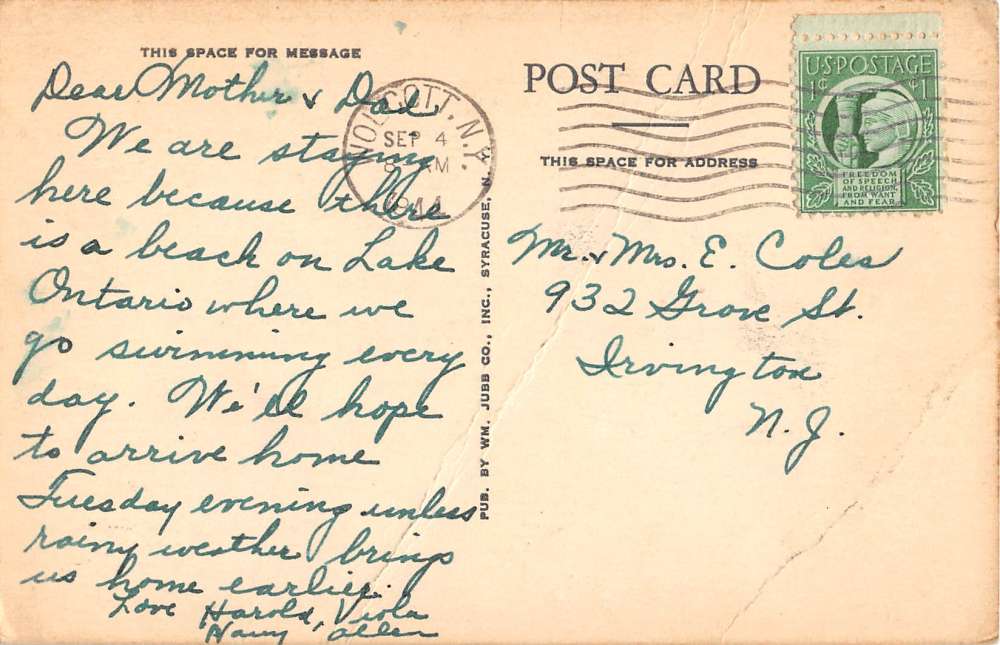 THIS SPACE FOR MESSAGE
Dear Mother & Dad
We are staying
here because there
is a beach on Lake
Ontario where we
go swimming every
day. We'll hope
to arrive home
Tuesday evening unless
rainy weather brings
us home earlier.
Love Harold, Viola
Allen
PUB. BY WM. JUBB CO., INC., SYRACUSE, N.Y.
WOLCOTT, N.Y.
SEP 4
AM
1944
POST CARD
THIS SPACE FOR ADDRESS
U.S. POSTAGE
1¢ ¢1
FREEDOM
OF SPEECH
AND RELIGION,
FROM WANT
AND FEAR
Mr. & Mrs. E. Coles
932 Grove St.
Irvington
N.J.